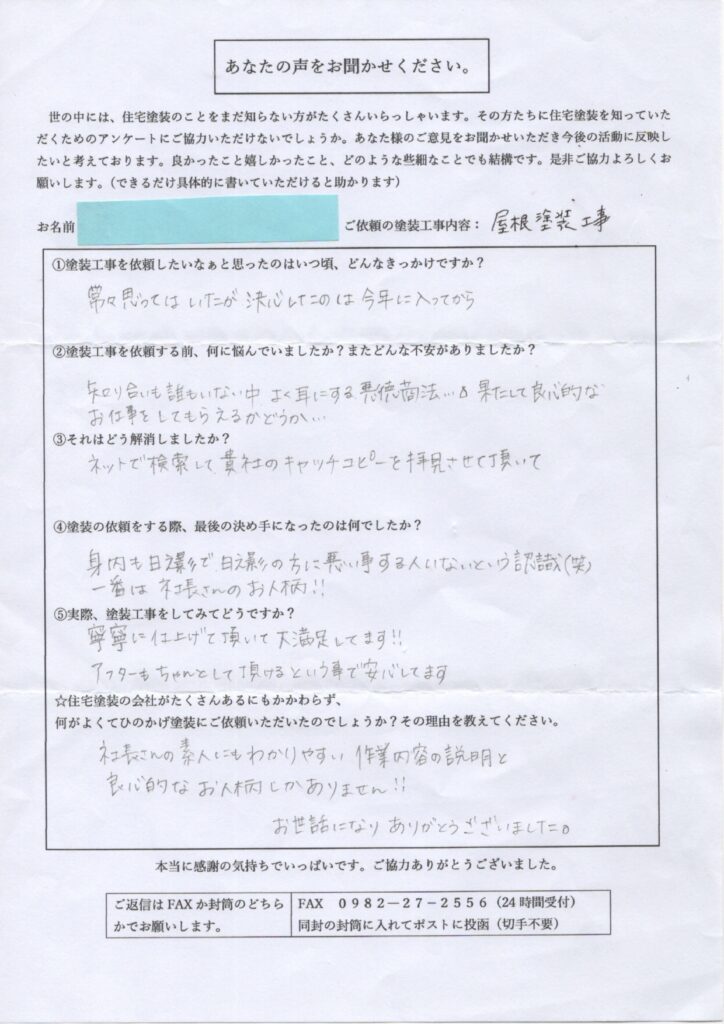 あなたの声をお聞かせください。
世の中には、住宅塗装のことをまだ知らない方がたくさんいらっしゃいます。その方たちに住宅塗装を知っていた
だくためのアンケートにご協力いただけないでしょうか。あなた様のご意見をお聞かせいただき今後の活動に反映し
たいと考えております。良かったこと嬉しかったこと、どのような些細なことでも結構です。是非ご協力よろしくお
願いします。(できるだけ具体的に書いていただけると助かります)
お名前 ご依頼の塗装工事内容: 屋根塗装工事
①塗装工事を依頼したいなぁと思ったのはいつ頃、どんなきっかけですか?
常々思ってはいたが決心したのは今年に入ってから
②塗装工事を依頼する前、何に悩んでいましたか?またどんな不安がありましたか?
知り合いも誰もいない中 よく耳にする悪徳商法… 果たして良心的な
お仕事をしてもらえるかどうか…
③それはどう解消しましたか?
ネットで検索して貴社のキャッチコピーを拝見させて頂いて
④塗装の依頼をする際、最後の決め手になったのは何でしたか?
身内も日之影で日之影の方に悪い事する人いないという認識(笑)
一番は社長さんのお人柄!!
⑤実際、塗装工事をしてみてどうですか?
寧寧に仕上げて頂いて大満足してます!!
アフターもちゃんとして頂けるという事で安心してます
☆住宅塗装の会社がたくさんあるにもかかわらず、
何がよくてひのかげ塗装にご依頼いただいたのでしょうか?その理由を教えてください。
社長さんの素人にもわかりやすい 作業内容の説明と
良心的なお人柄しかありません!!
お世話になりありがとうございました。
本当に感謝の気持ちでいっぱいです。ご協力ありがとうございました。
ご返信はFAXか封筒のどちら
かでお願いします。
FAX 0982－27－2556(24時間受付)
同封の封筒に入れてポストに投函(切手不要)